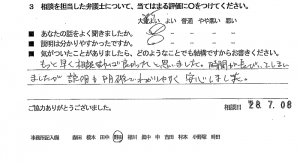 3 相談を担当した弁護士について、当てはまる評価に○をつけてください。
大変よい よい 普通 やや悪い 悪い
■ あなたの話をよく聞きましたか。
■ 説明は分かりやすかったですか。
■ 気がついたことがありましたら、どのようなことでも結構ですからお書きください。
もっと早く相談すれば良かったと思いました。時間が長びいてしまい
ましたが説明も明確でわかりやすく安心しました。
ご協力ありがとうございました。
相談日 28.7.08
事務所記入欄 森田 榎本 田中